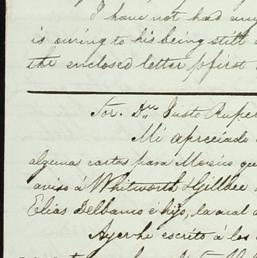 I have not had any
is owing to his being still
the enclosed letter
Sor. Dn. Justo Ruper
Mi apreciado
algunas cartas para Mexico que
aviso á Whitworth
Elias Delbanco é hijo, la cual
Ayer he escrito á los